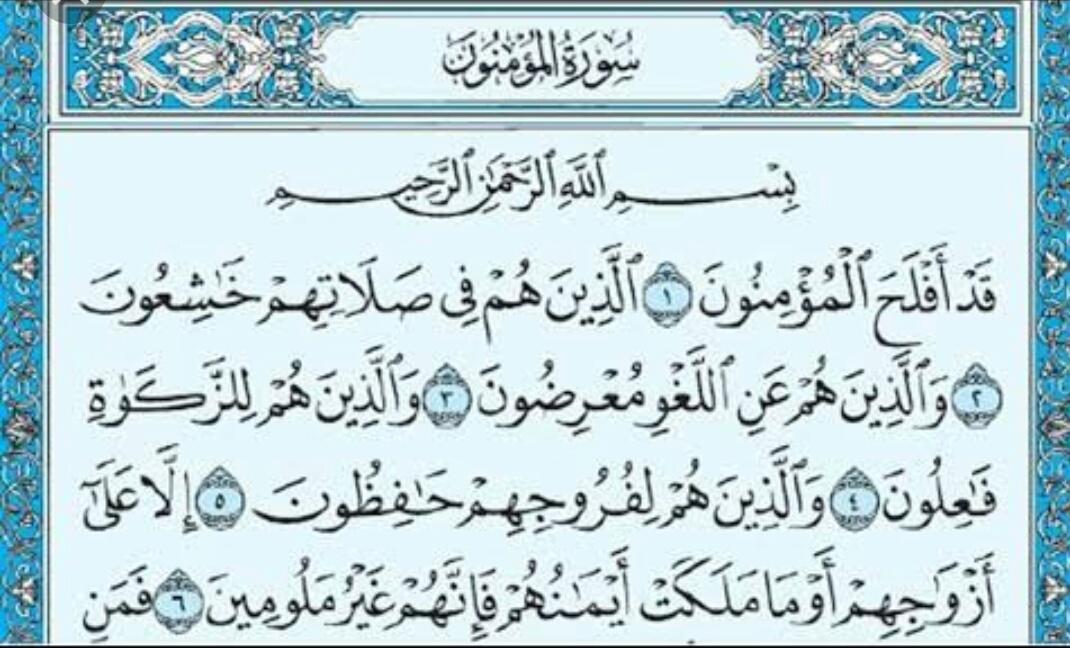 سُورَةُ المُؤْمِنُونَ
بِسْمِ ٱللَّهِ ٱلرَّحْمَٰنِ ٱلرَّحِيمِ
قَدْ أَفْلَحَ ٱلْمُؤْمِنُونَ ١ ٱلَّذِينَ هُمْ فِى صَلَاتِهِمْ خَٰشِعُونَ
٢ وَٱلَّذِينَ هُمْ عَنِ ٱللَّغْوِ مُعْرِضُونَ ٣ وَٱلَّذِينَ هُمْ لِلزَّكَوٰةِ
فَٰعِلُونَ ٤ وَٱلَّذِينَ هُمْ لِفُرُوجِهِمْ حَٰفِظُونَ ٥ إِلَّا عَلَىٰٓ
أَزْوَٰجِهِمْ أَوْ مَا مَلَكَتْ أَيْمَٰنُهُمْ فَإِنَّهُمْ غَيْرُ مَلُومِينَ ٦ فَمَنِ